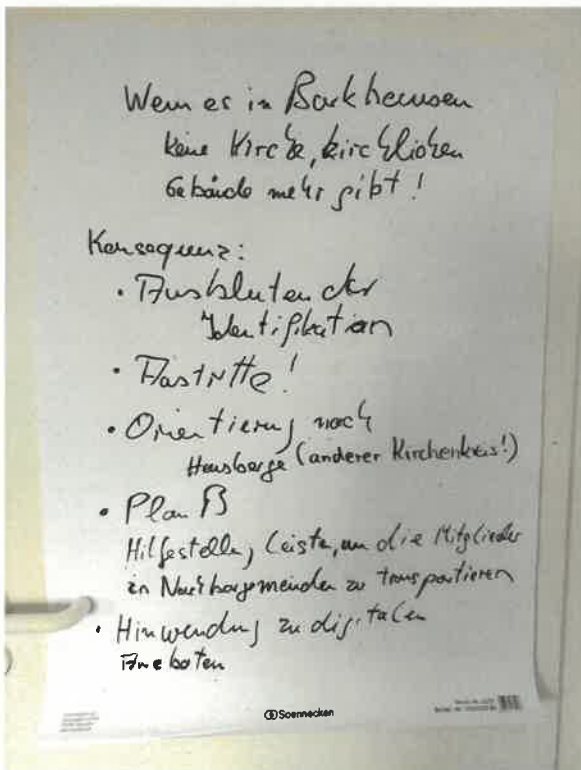 Wenn es in Barkhausen
keine Kirche, kirchlichen
Gebäude mehr gibt!
Konsequenz:
• Ausbluten der
Identifikation
• Austritte!
• Orientierung nach
Hausberge (anderer Kirchenkreis!)
• Plan B
Hilfestellung leisten, um die Mitglieder
in Nachbargemeinden zu transportieren
• Hinwendung zu digitalen
Angeboten
Soennecken